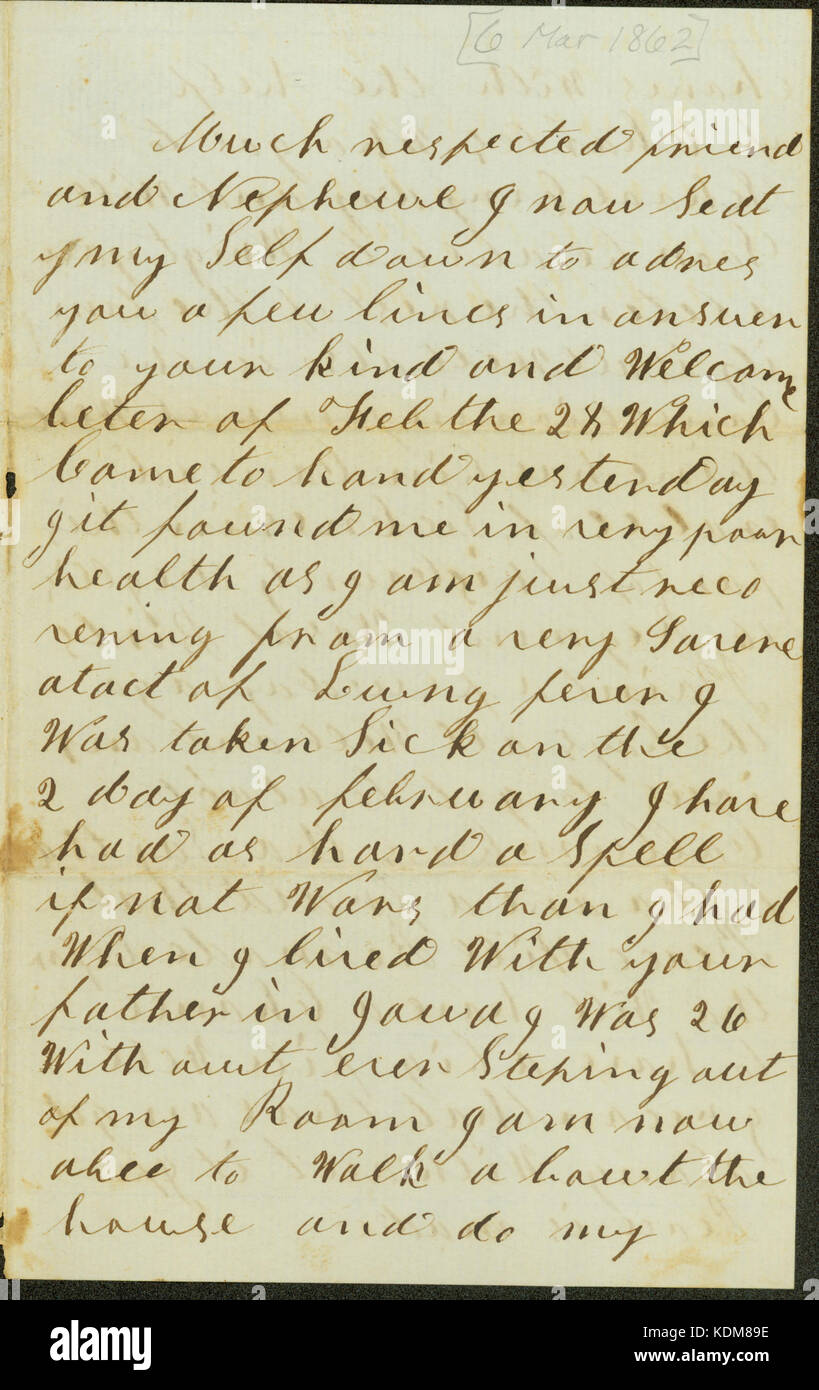 [6 Mar 1862]
Much respected friend
and Nephewe I now Seat
my Self down to adres
you a few lines in answer
to your kind and Welcome
leter of Feb the 28 Which
Come to hand yesterday
it found me in very poor
health as I am just reco
vering from a very Severe
atact of Lung fever I
Was taken Sick on the
2 day of february I have
had as hard a Spell
if not Wors than I had
When I lived With your
father in Iowa I Was 26
With out ever Steping out
of my Room I am now
able to Walk a bout the
house and do my
alamy
KDM89E
www.alamy.com